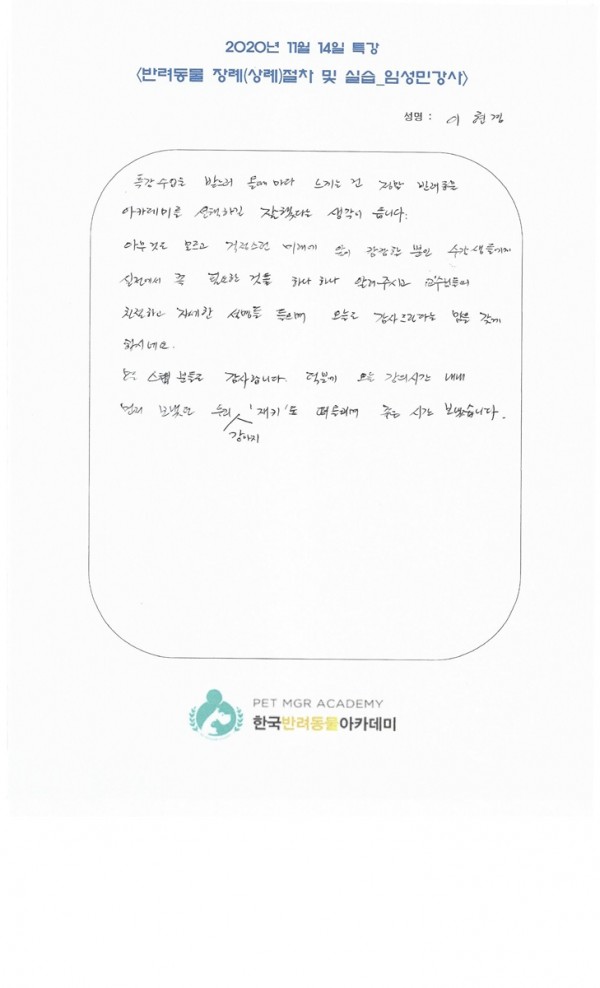 2020년 11월 14일 특강
<반려동물 장례(상례)절차 및 실습_임성민강사>
성명 : 이현경
특강수업을 받으러 올때마다 느끼는 건 정말 반려동물
아카데미를 선택하길 잘했다는 생각이 듭니다.
아무것도 모르고 걱정스런 미래에 수강생들에게
실전에서 꼭 필요한 것을 하나 하나 알려주시고 교수님들의
친절하고 자세한 설명을 들으며 오늘도 감사드린다는 맘을 갖게
하시네요.
스텝분들도 감사합니다. 덕분에 오늘 강의시간 내내
강아지 '재키'도 좋은 시간 보냈습니다.
PET MGR ACADEMY
한국반려동물아카데미